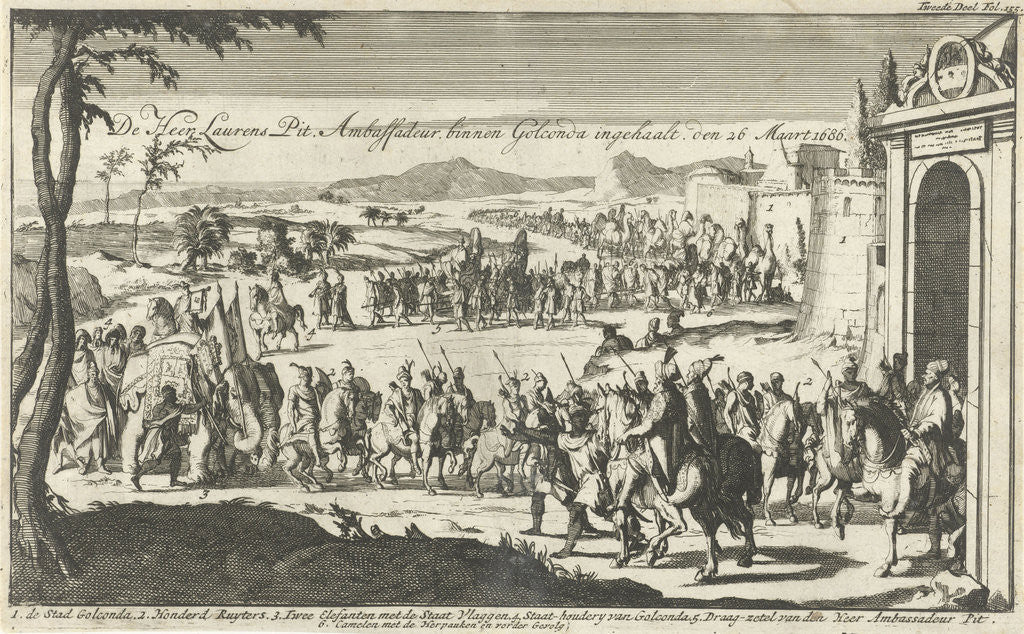 Tweede Deel Fol. 155.
De Heer Laurens Pit, Ambassadeur, binnen Golconda ingehaalt, den 26 Maart 1686.
1
1
2
2
3
4
5
1. de Stad Golconda. 2. Honderd Ruyters. 3. Twee Elefanten met de Staat Vlaggen. 4. Staat-houdery van Golconda. 5. Draag-zetel van den Heer Ambassadeur Pit.
6. Camelen met de Herpauken en vorder Gevolg;